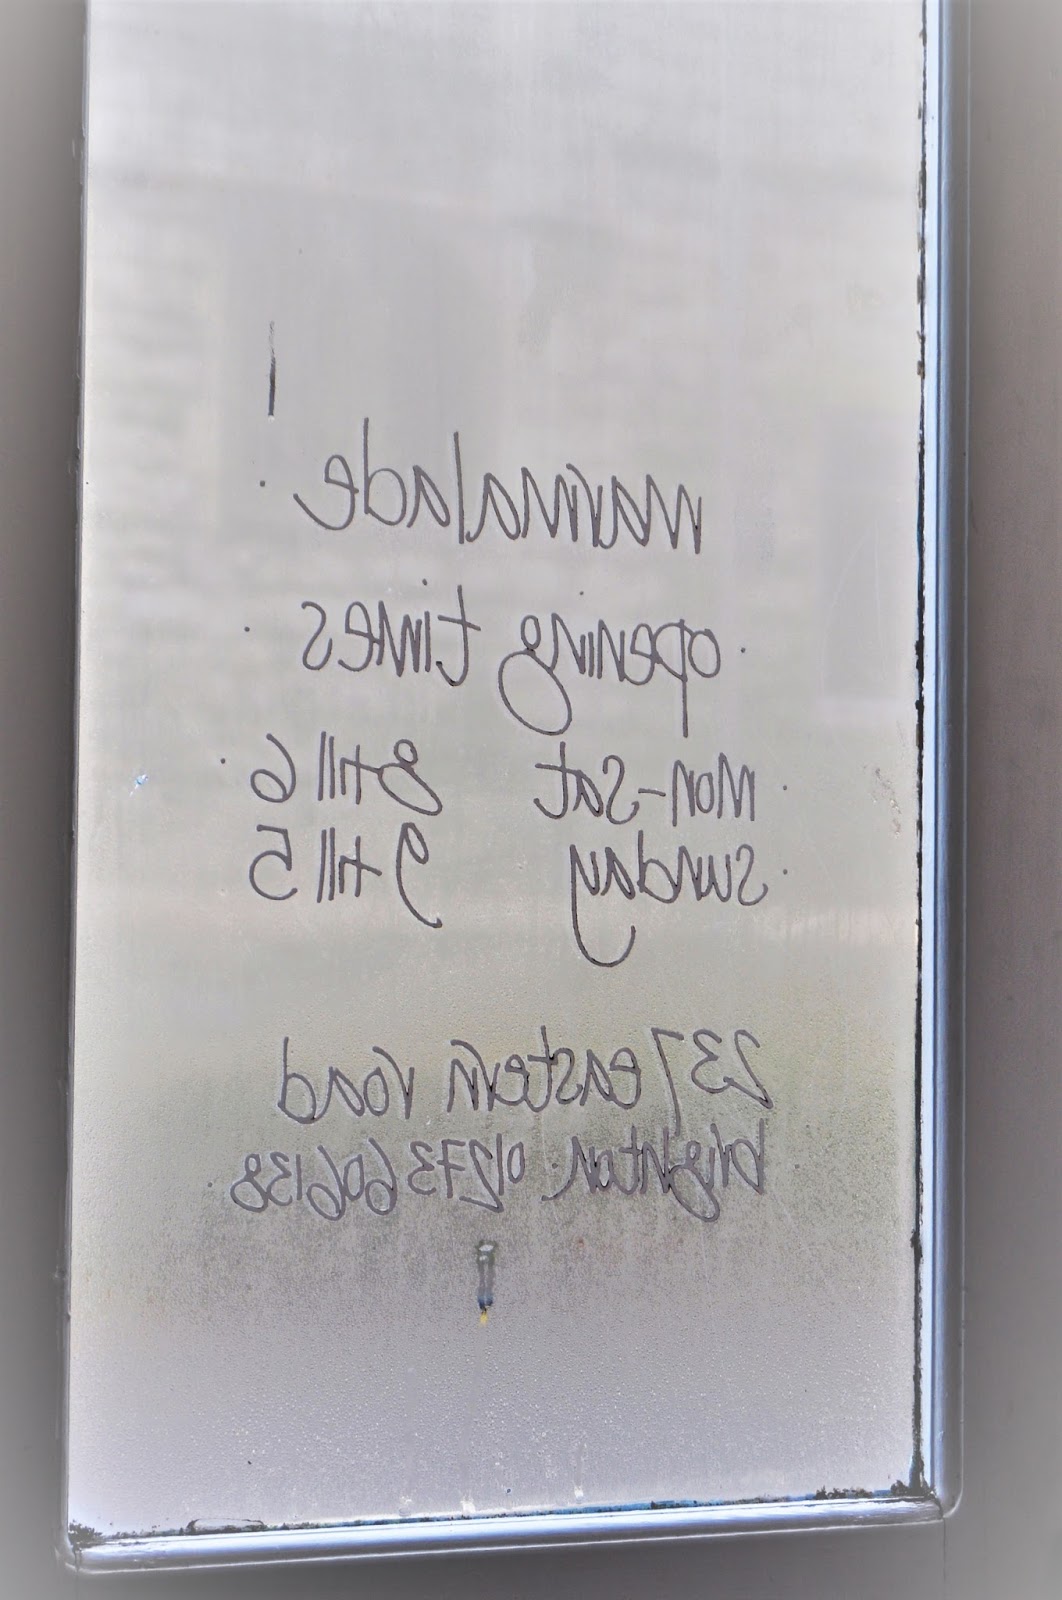 marmalade
opening times
mon-sat 8till 6
sunday 9till 5
237 eastern road
brighton 01273 606138